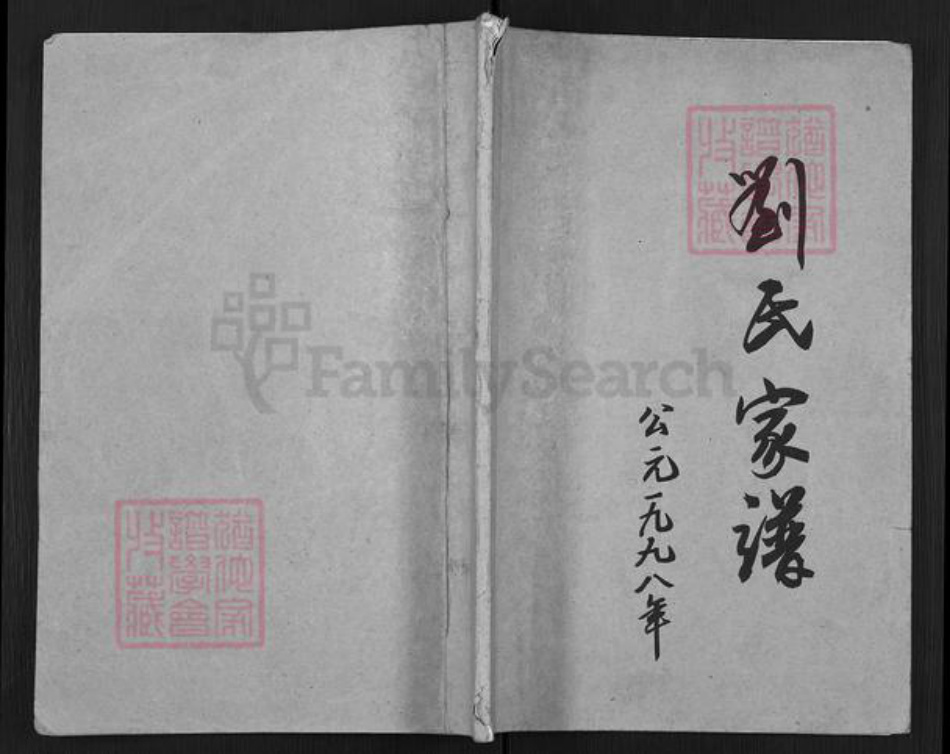 劉氏家譜
公元一九九八年
猶他家
譜學會
收藏
FamilySearch
猶他家
譜學會
收藏